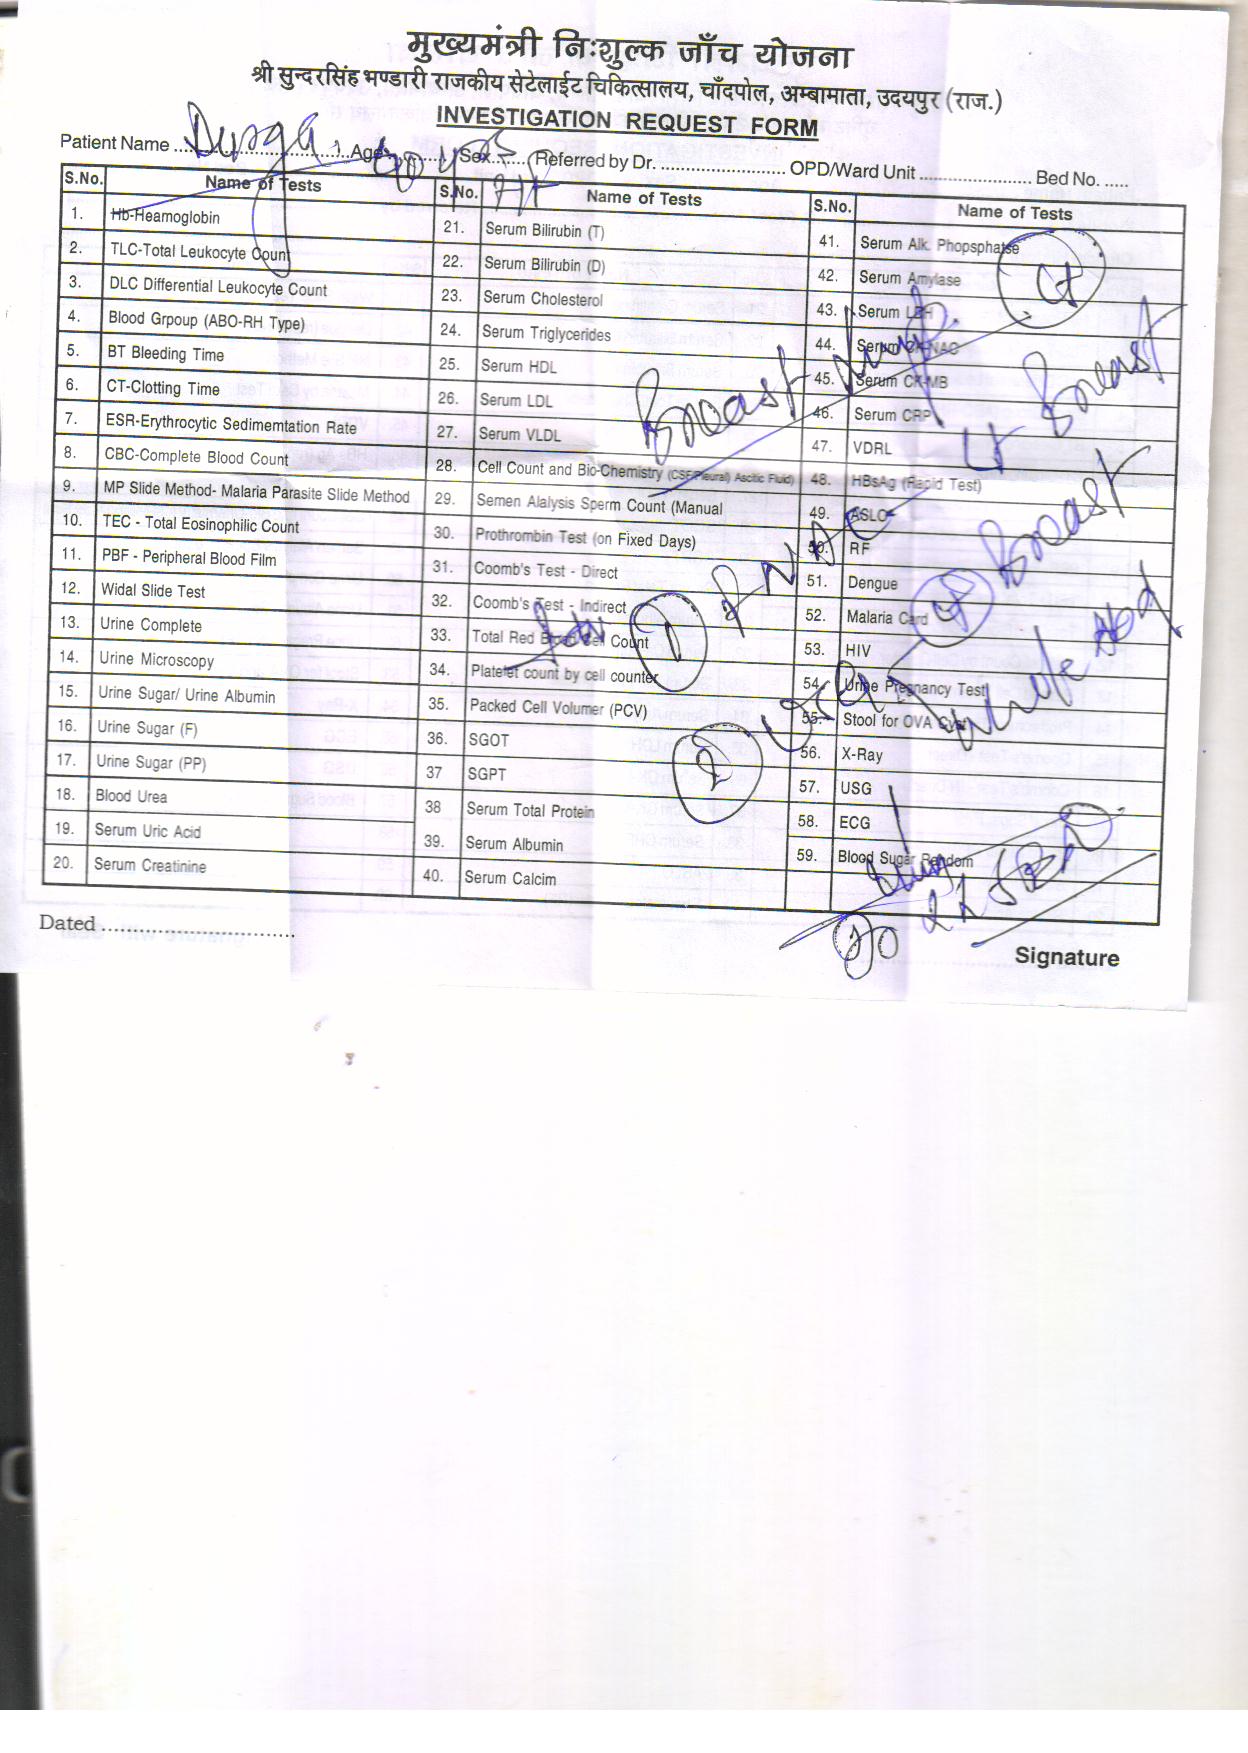 मुख्यमंत्री निःशुल्क जाँच योजना
श्री सुन्दरसिंह भण्डारी राजकीय सेटेलाईट चिकित्सालय, चाँदपोल, अम्बामाता, उदयपुर (राज.)
INVESTIGATION REQUEST FORM
Patient Name Durga Age 40 yrs Sex F Referred by Dr. OPD/Ward Unit Bed No.
S.No. Name of Tests S.No. Name of Tests S.No. Name of Tests
1. Hb-Heamoglobin 21. Serum Bilirubin (T) 41. Serum Alk. Phopsphatse
2. TLC-Total Leukocyte Count 22. Serum Bilirubin (D) 42. Serum Amylase
3. DLC Differential Leukocyte Count 23. Serum Cholesterol 43. Serum LDH
4. Blood Grpoup (ABO-RH Type) 24. Serum Triglycerides 44. Serum CK-NAC
5. BT Bleeding Time 25. Serum HDL 45. Serum CK-MB
6. CT-Clotting Time 26. Serum LDL 46. Serum CRP
7. ESR-Erythrocytic Sedimemtation Rate 27. Serum VLDL 47. VDRL
8. CBC-Complete Blood Count 28. Cell Count and Bio-Chemistry (CSF/Pleural) Ascitic Fluid) 48. HBsAg (Rapid Test)
9. MP Slide Method- Malaria Parasite Slide Method 29. Semen Alalysis Sperm Count (Manual 49. ASLO
10. TEC - Total Eosinophilic Count 30. Prothrombin Test (on Fixed Days) 50. RF
11. PBF - Peripheral Blood Film 31. Coomb's Test - Direct 51. Dengue
12. Widal Slide Test 32. Coomb's Test - Indirect 52. Malaria Card
13. Urine Complete 33. Total Red Blood Cell Count 53. HIV
14. Urine Microscopy 34. Platelet count by cell counter 54. Urine Pregnancy Test
15. Urine Sugar/ Urine Albumin 35. Packed Cell Volumer (PCV) 55. Stool for OVA Cyst
16. Urine Sugar (F) 36. SGOT 56. X-Ray
17. Urine Sugar (PP) 37 SGPT 57. USG
18. Blood Urea 38 Serum Total Protein 58. ECG
19. Serum Uric Acid 39. Serum Albumin 59. Blood Sugar Random
20. Serum Creatinine 40. Serum Calcim
Breast lump Lt
Adv 1 FNAC Lt Breast
2 USG Lt Breast
whole Abd
Dated
Signature